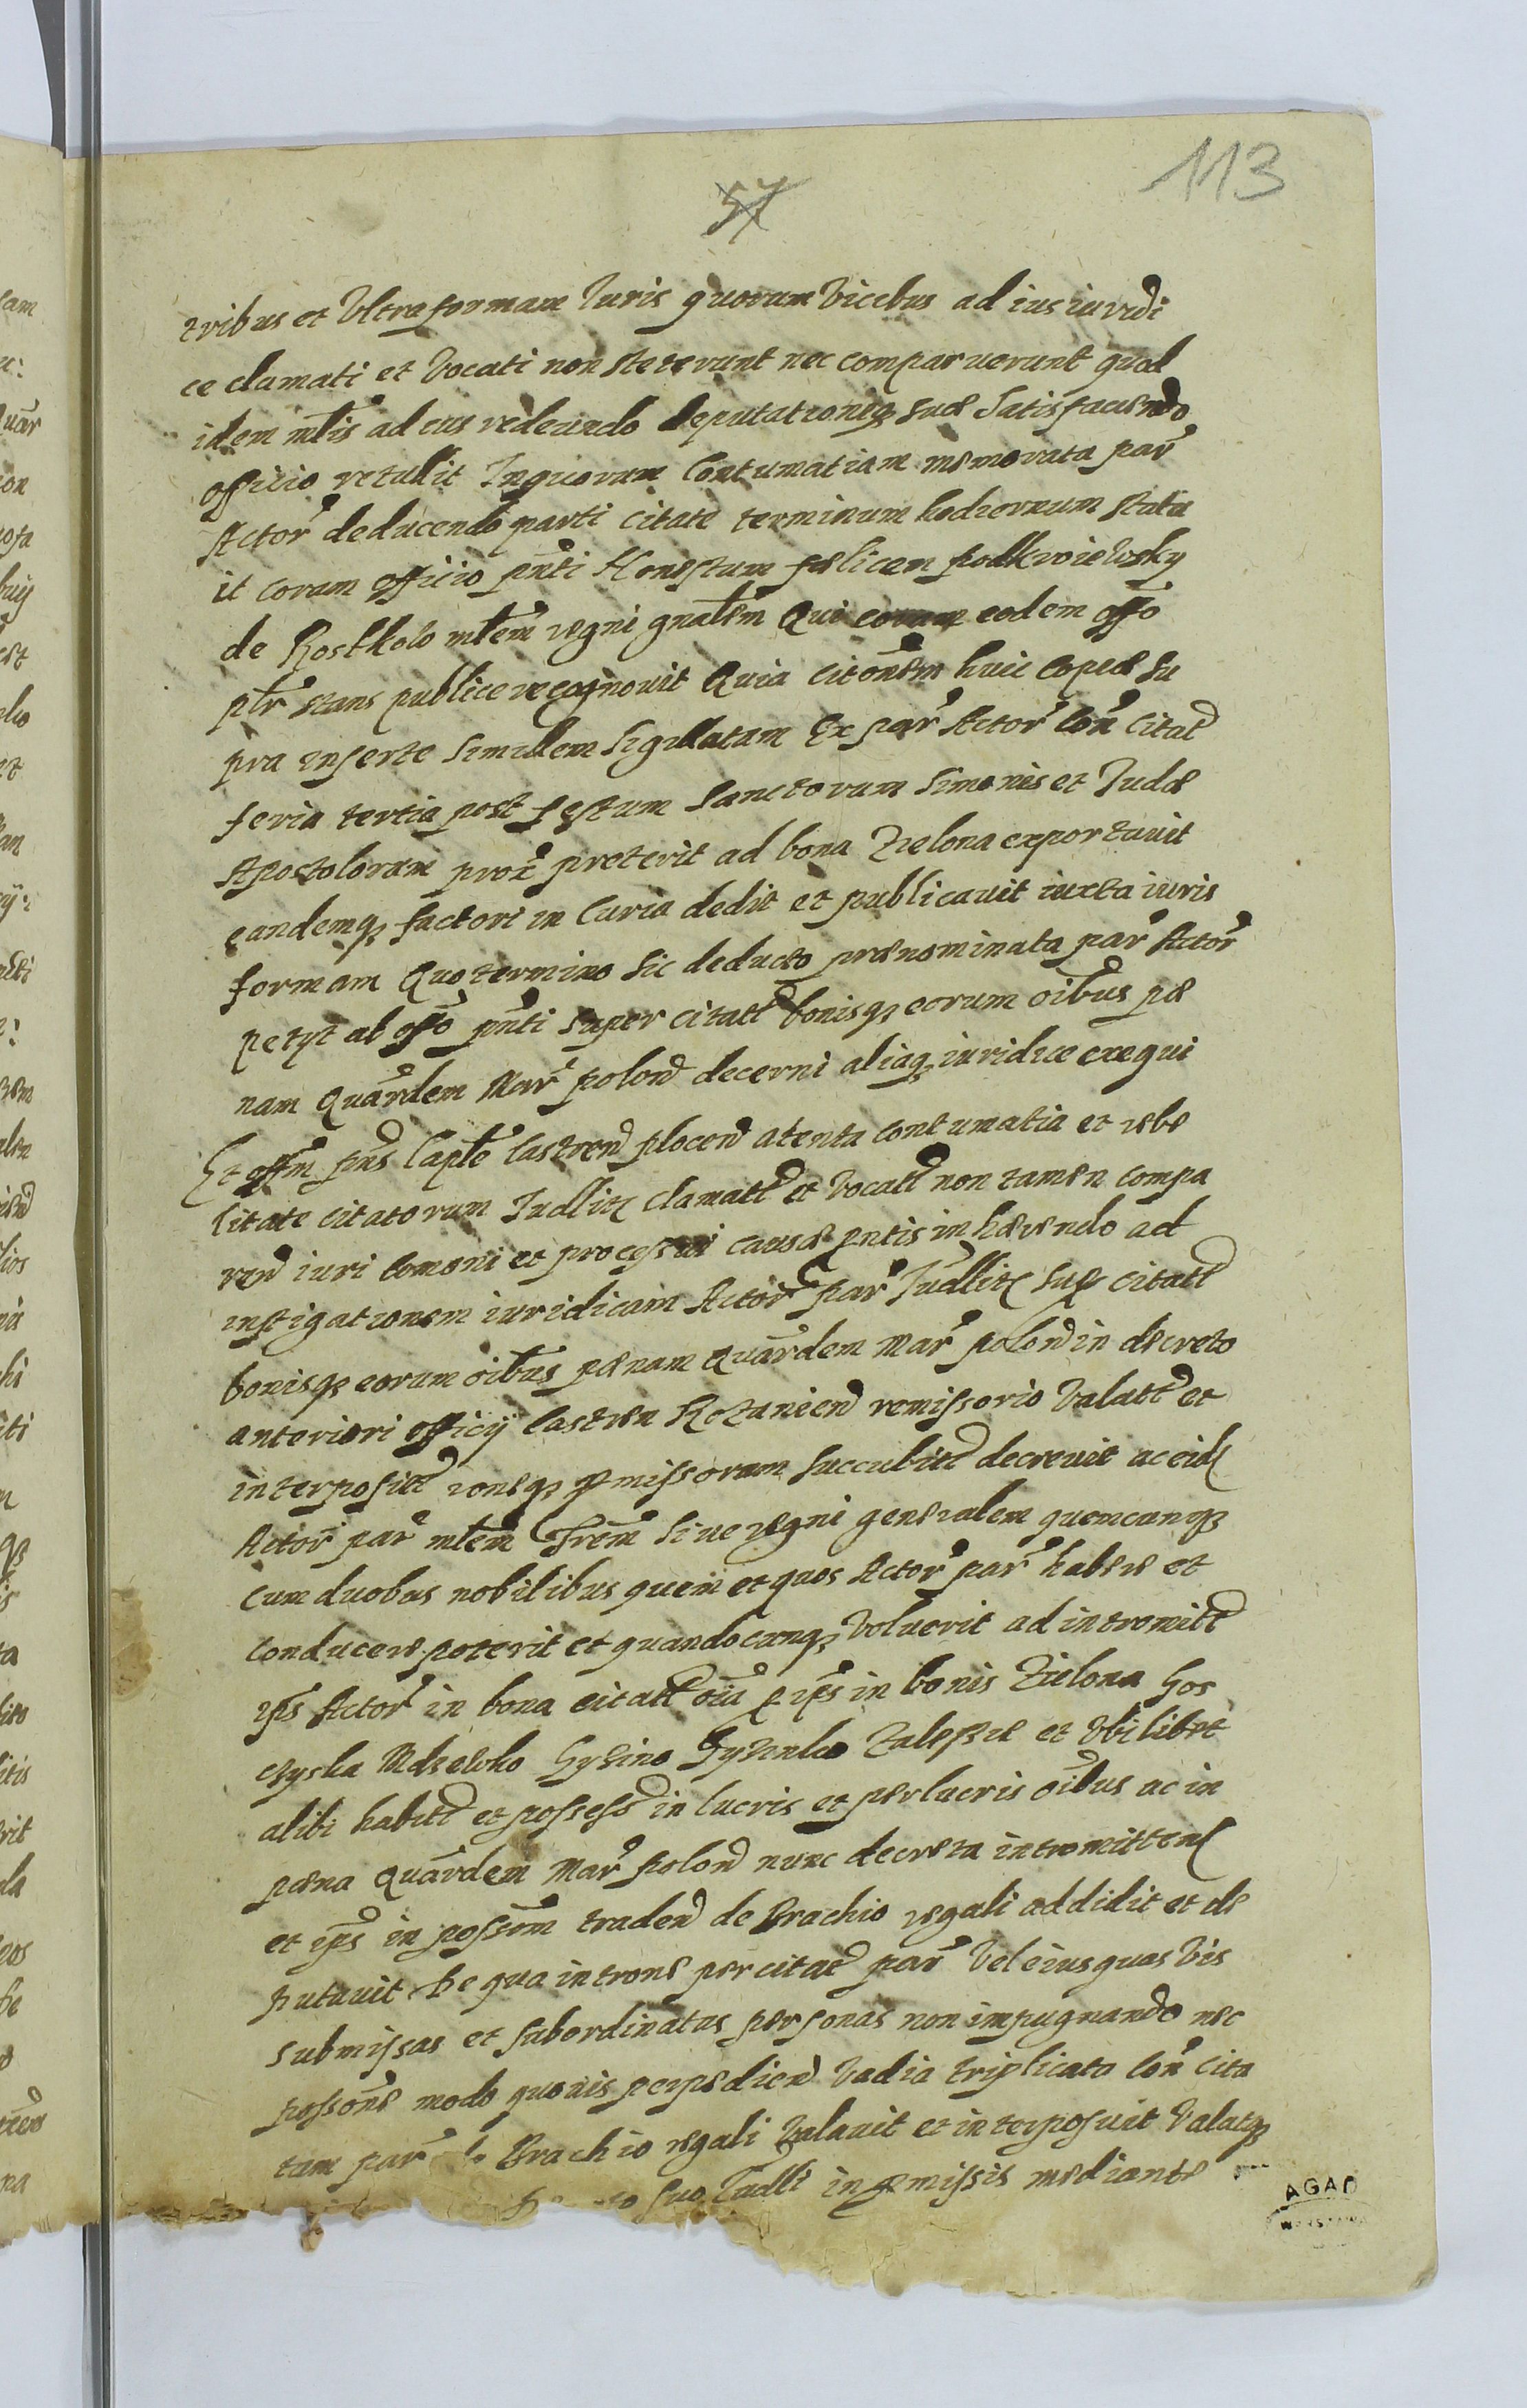 113
57
tribus et Ultra formam Iuris quorum Vicibus ad ius iuridi
ce clamati et Vocati non steterunt nec comparuerunt quod
idem mtłis ad eus redeundo Deputationiq suæ Satisfaciendo
officio retulit Inquorum Contumatiam memorata par
Actor deducendo parti Citate terminum hodiernum statu
it coram officio pnti Honestum fælicem podkroiewsky
de Rostkolo mtłem regni gnałem Qui coram eodem offo
ptr stans publice recognovit Quia citonem huic copiæ su
pra inserte similem Sigillatam Ex par Actor Con Citat
feria tertia post festum Sanctorum Simonis et Judæ
Apostolorum prox preterit ad bona Zielona exportavit
eandemq factori in Curia dedit et publicavit iuxta iuris
formam Quo termino sic deducto prænominata par Actor
petyt ab offo pnti super citatt bonisq eorum oibus pæ
nam Quardem Mar polon decerni aliaq iuridice exequi
Et offm pns Capłe Castren plocen atenta contumatia et rebe
litate citatorum Iudlitr clamatt et Vocatt non tamen compa
ren iuri comoni et processui causæ pntis inhærendo ad
instigationem iuridicam Actor par Iudlitr sup citatt
bonisq eorum oibus pænam Quardem Mar polon in decreto
anteriori officij Castren Rozanien remissorio Valatt et
interposit roneq pmissorum succubitt decrevit ac eid
Actor par mtłem Trem sive regni generalem quemcunq
cum duobus nobilibus quem et quos Actor par habere et
conducere poterit et quandocunq Voluerit ad intromitt
ips Actor in bona citatt oia p ips in bonis Zielona Gos
czyska Mdzewko Gysino Gyzinko Zalesse et Ubilibet
alibi habitt et possess in lucris et perlucris oibus ac in
pæna Quardem Mar polon nunc decreta intromitten
et ips in possom traden de Brachio regali addidit et de
putavit De qua introne per citat par Vel eius quas Vis
submissas et subordinatas personas non impugnando nec
possone modo quovis perpedien Vadia triplicata Con Cita
tam par de Brachio regali Valavit et interposuit Valatq
suo Iudlli in pmissis mediante
AGAD
WARSZAWA